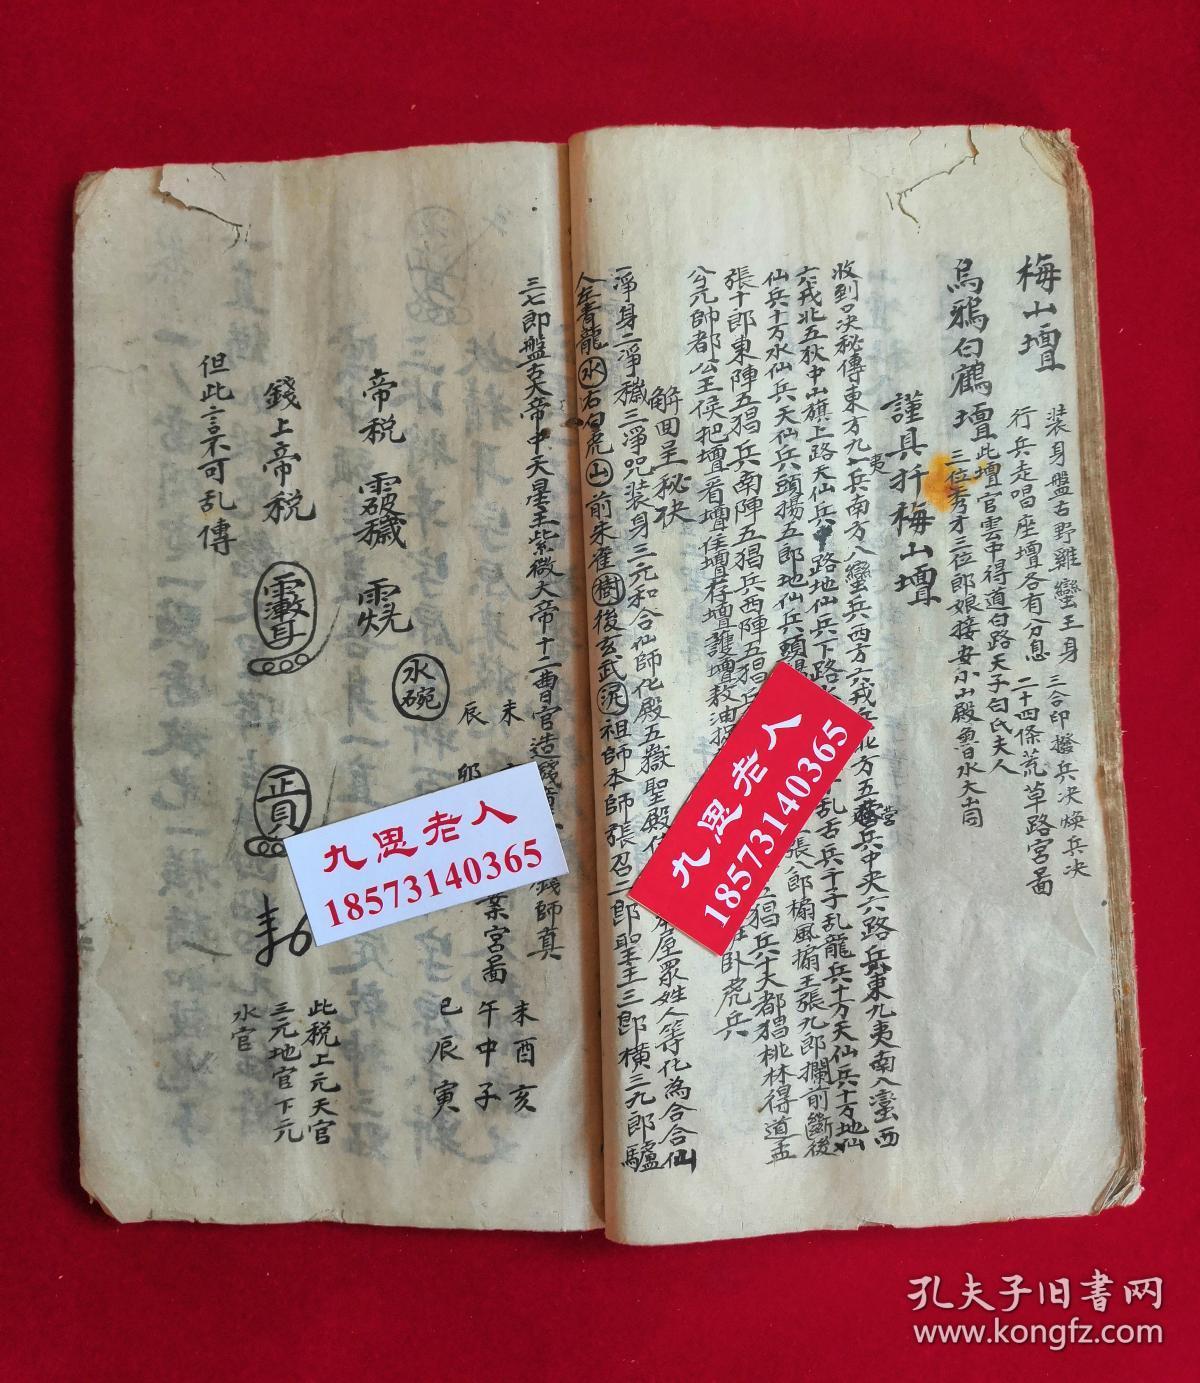 梅山壇
装身盤古野雞蠻王身 三合印撥兵决煥兵决
行兵走唱座壇各有分息 二十四條荒草路宫啚
烏鴉白鶴壇
此壇官雲中得道白路天子白氏夫人
三位秀才三位郎娘接安小山殿
謹具扦梅山壇
收到口决秘傳東方九夷兵南方八蠻兵西方六戎兵北方五
營兵中央六路兵東九夷南八蠻西
六戎北五狄中山旗上路天仙兵中路地仙兵下路
乱舌兵千子乱龍兵十万天仙兵十万地仙
仙兵十万水仙兵天仙兵頭揚五郎地仙兵頭
張八郎搧風搧王張九郎攔前斷後
張十郎東陣五猖兵南陣五猖兵西陣五猖兵
猖兵大都猖桃林得道孟
公元帥都公王侯把壇看壇住壇存壇護壇
卧虎兵
解囬呈秘决
一淨身二淨穢三淨咒裝身三元和合仙師化殿五嶽聖殿
屋眾姓人等化為合合仙
人左青龍水右白虎山前朱雀樹後玄武泥祖師本師張召二郎聖主三郎横三九郎驢
三七郎盤古天帝中天星主紫微大帝十二曹官造錢
錢師真
未
辰
卯
案宫啚
未酉亥
午中子
巳辰寅
水碗
帝税
錢上帝税
正貝
此税上元天官
三元地官下元
水官
但此言不可乱傳
九思老人
18573140365
九思老人
18573140365
孔夫子旧书网
www.kongfz.com